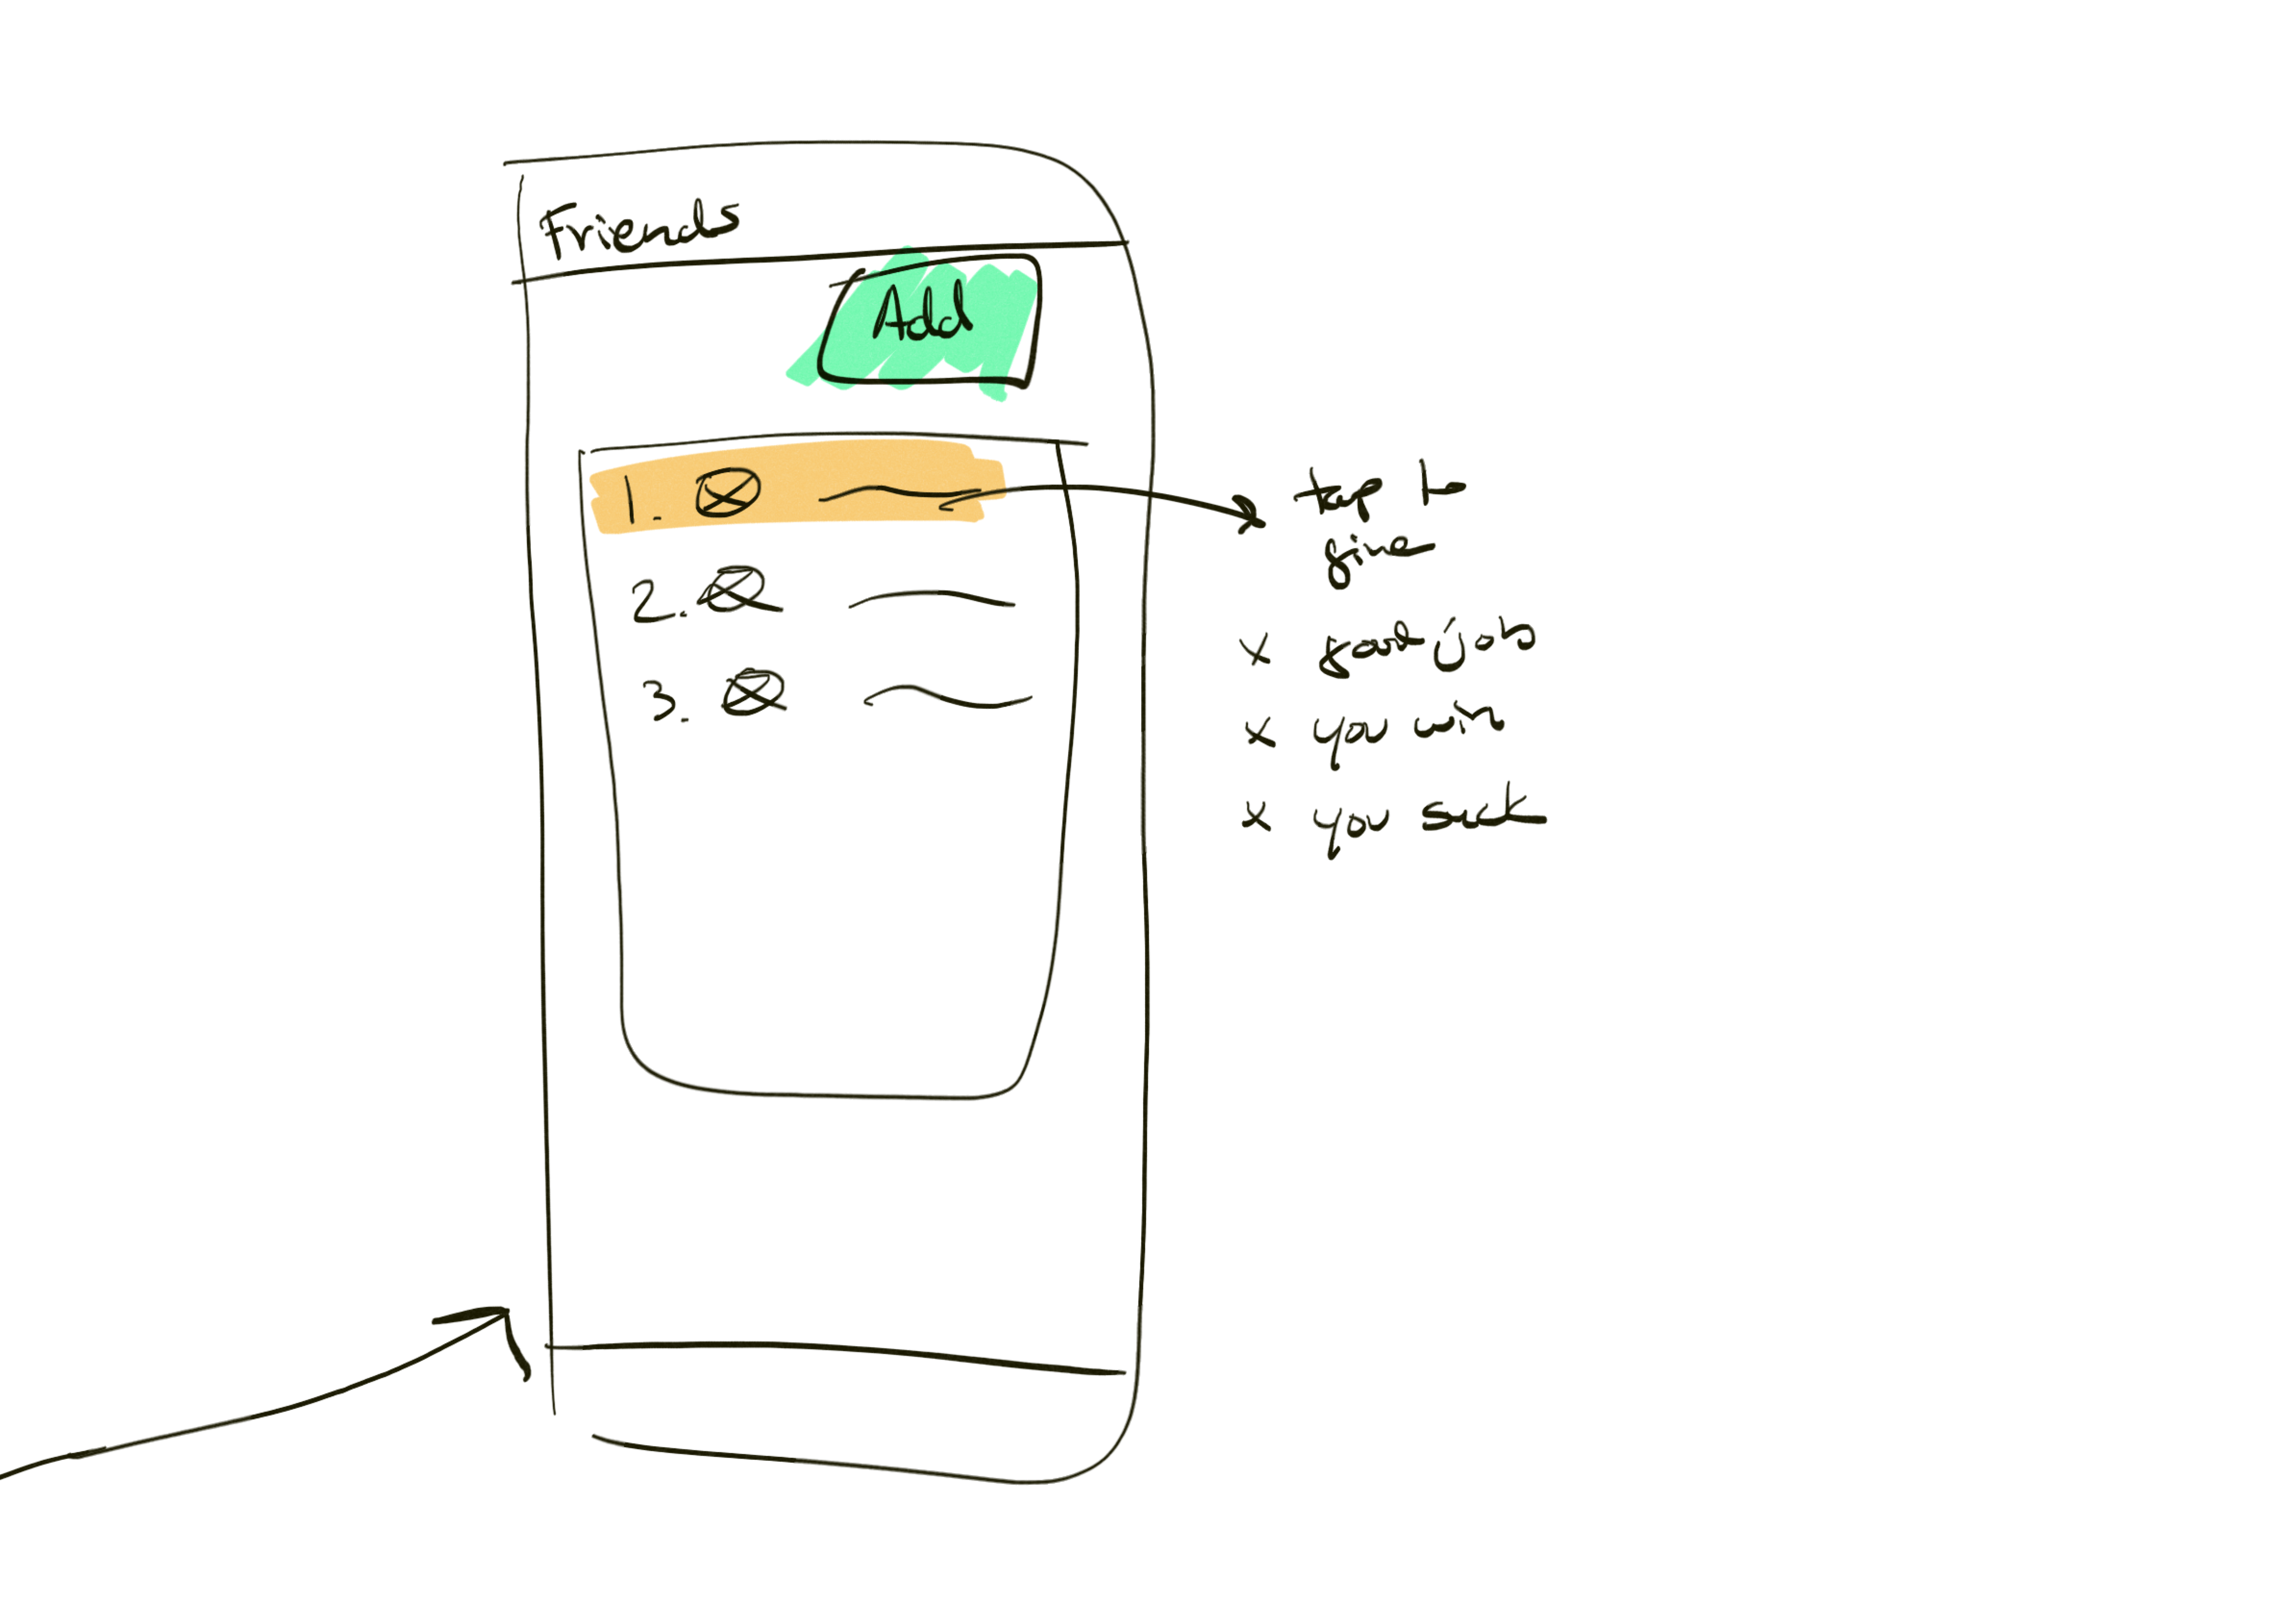 Friends
Add
1.
2.
3.
tap to
give
x good job
x you win
x you suck